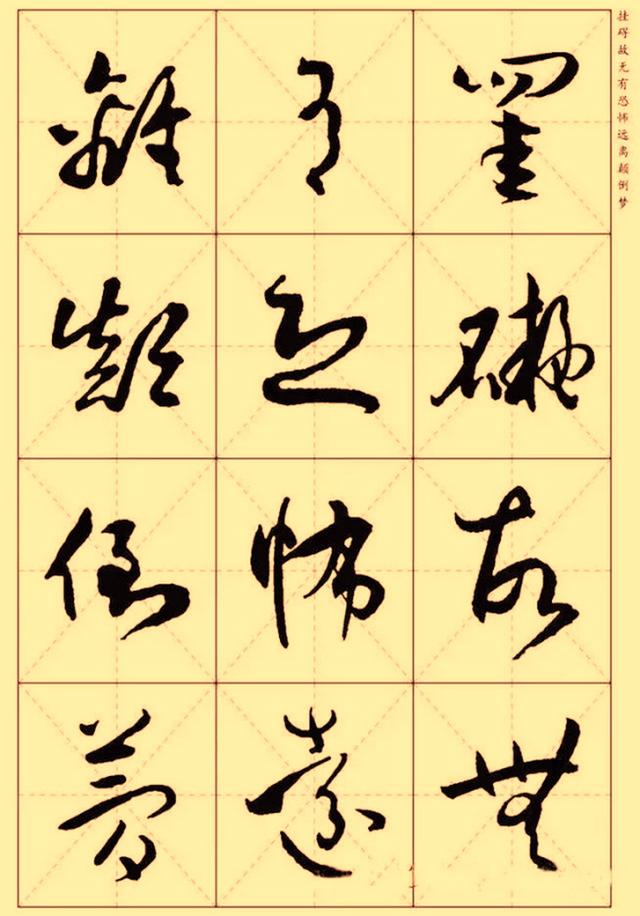 挂碍故无有恐怖远离颠倒梦
罣礙故無
有恐怖遠
離顛倒夢